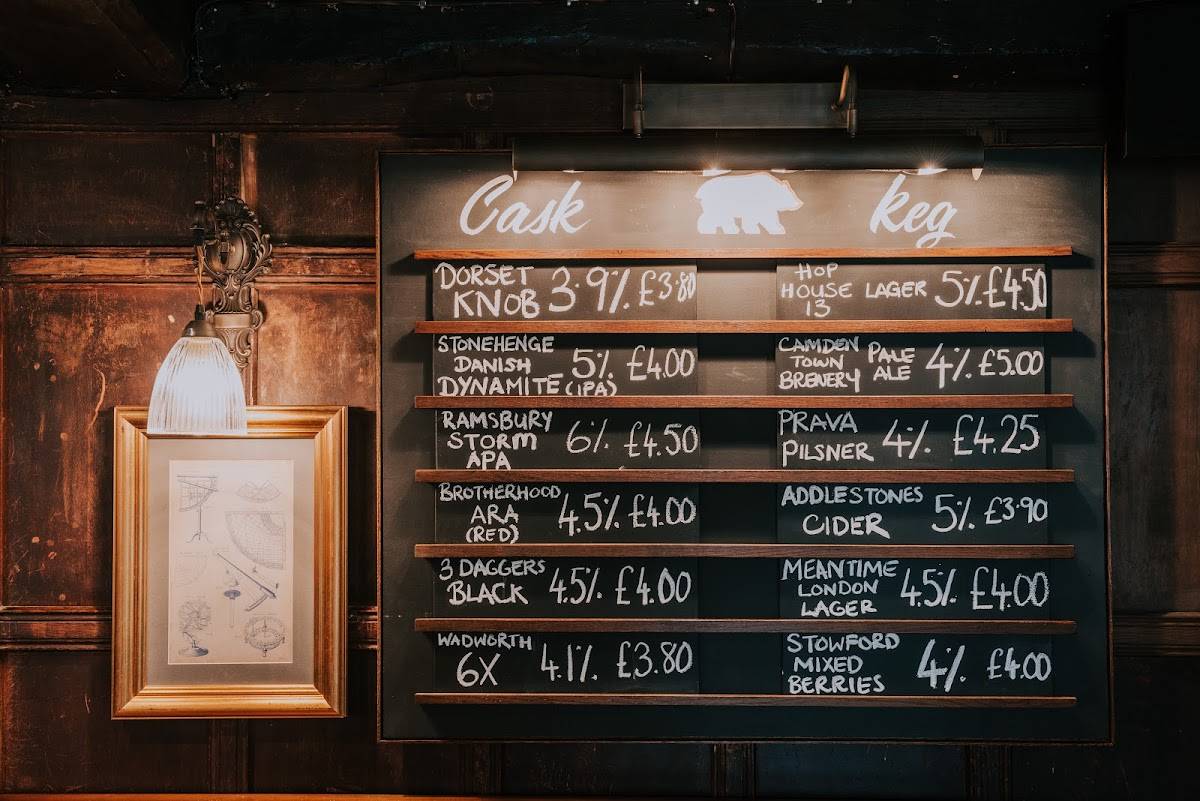 Cask
DORSET
KNOB 3.9% £3.80
STONEHENGE
DANISH 5% £4.00
DYNAMITE (IPA)
RAMSBURY
STORM 6% £4.50
APA
BROTHERHOOD
ARA 4.5% £4.00
(RED)
3 DAGGERS
BLACK 4.5% £4.00
WADWORTH
6X 4.1% £3.80
keg
HOP
HOUSE LAGER 5% £4.50
13
CAMDEN
TOWN PALE ALE 4% £5.00
BRENERY
PRAVA
PILSNER 4% £4.25
ADDLESTONES
CIDER 5% £3.90
MEANTIME
LONDON 4.5% £4.00
LAGER
STOWFORD
MIXED 4% £4.00
BERRIES